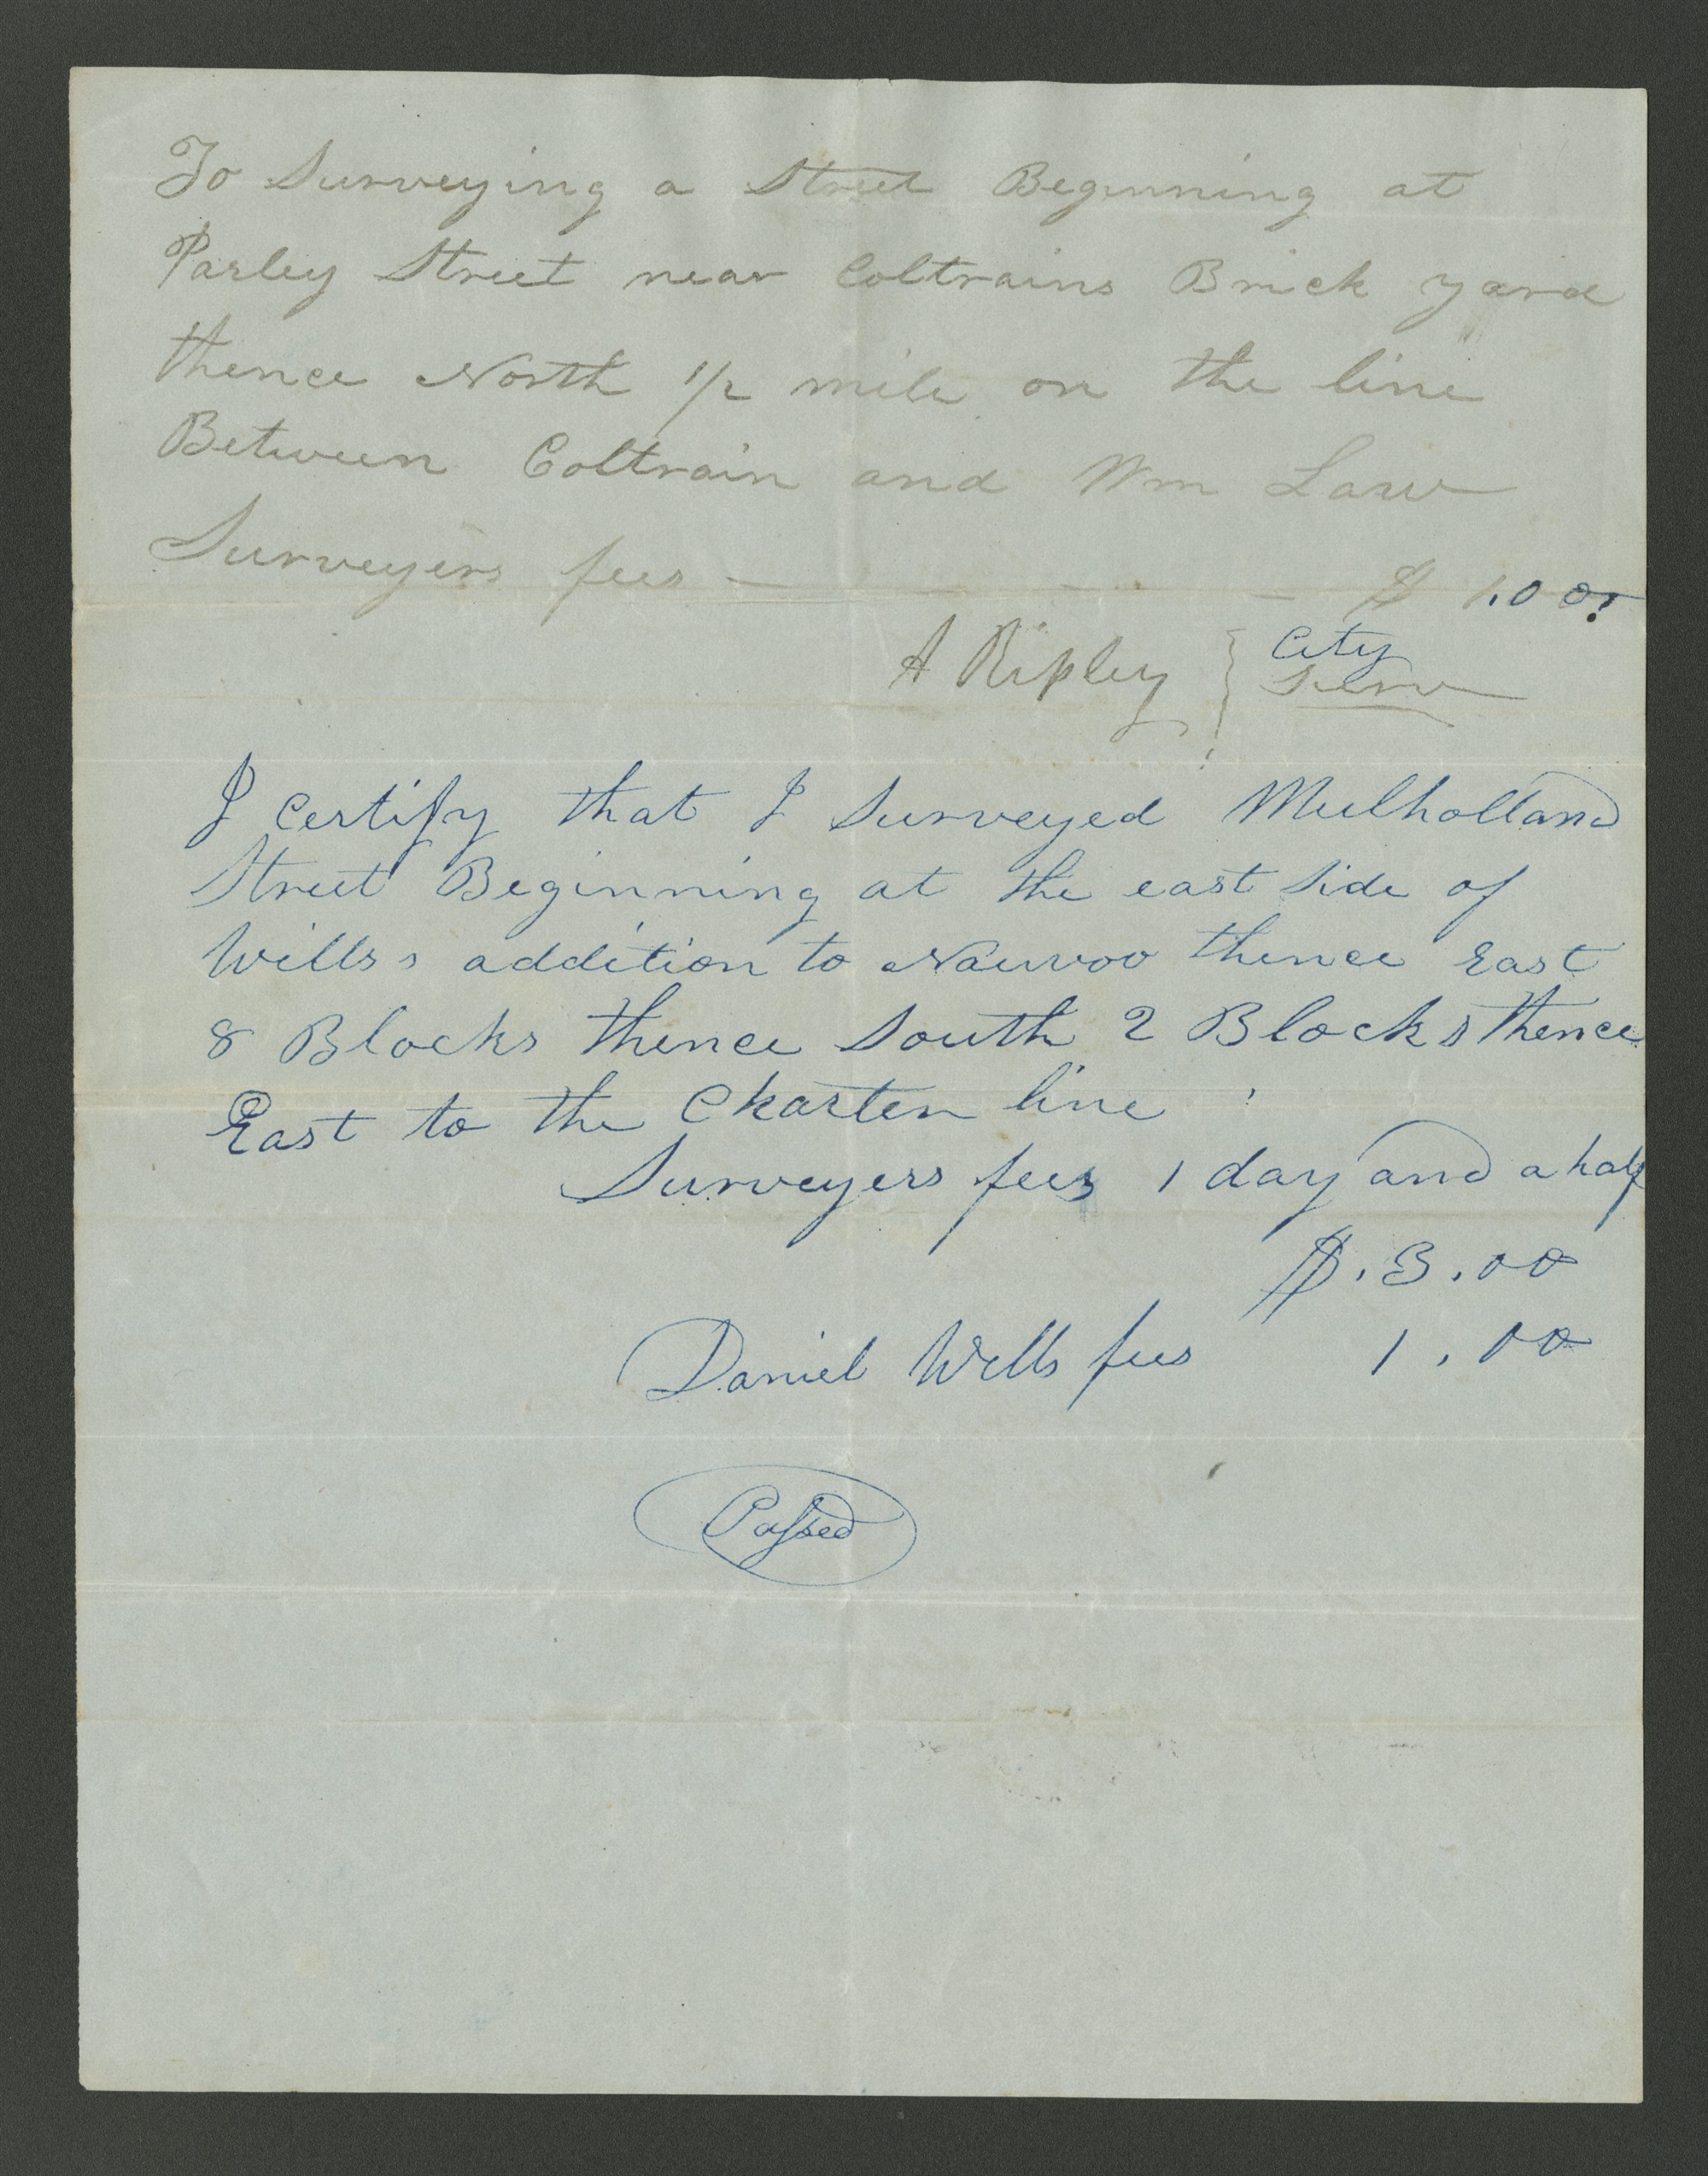 To Surveying a Street Beginning at
Parley Street near Coltrains Brick yard
thence North 1/2 mile on the line
Between Coltrain and Wm Law
Surveyers fees — — — — $ 1.00
A Ripley } City
Surv
I Certify that I Surveyed Mulholland
Street Beginning at the east Side of
Wills s addition to Nauvoo thence East
8 Blocks thence South 2 Blocks thence
East to the Charten line
Surveyers fees 1 day and a half
$.3.00
Daniel Wells fees 1.00
Passed